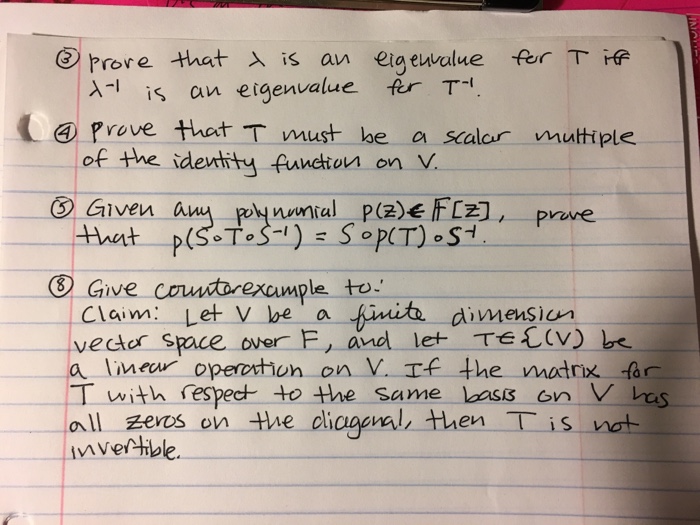 ③ prove that λ is an eigenvalue for T iff
λ-1 is an eigenvalue for T-1.
④ Prove that T must be a scalar multiple
of the identity function on V.
⑤ Given any polynomial p(z)∈ F[z], prove
that p(S∘T∘S-1) = S∘p(T)∘S-1.
⑧ Give counterexample to:
Claim: Let V be a finite dimension
vector space over F, and let T∈L(V) be
a linear operation on V. If the matrix for
T with respect to the same basis on V has
all zeros on the diagonal, then T is not
invertible.